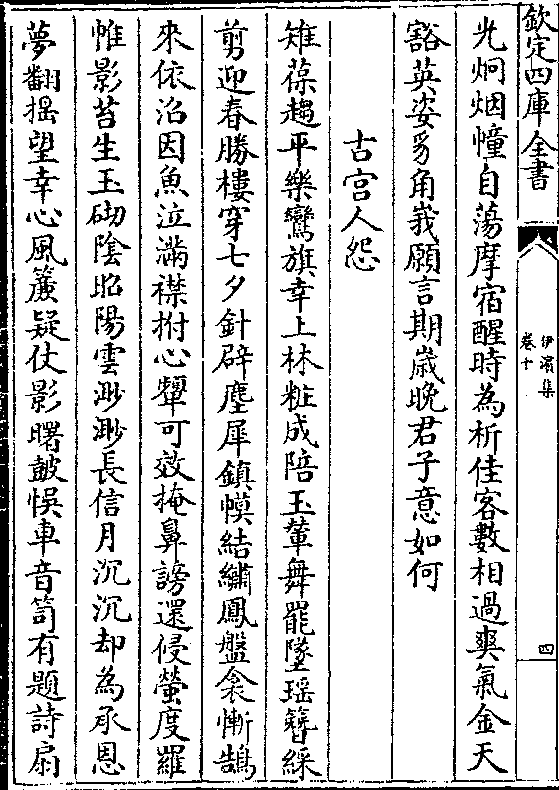 欽定四庫全書
伊濱集
卷十
四
光炯烟幢自蕩摩宿醒時為析佳客數相過爽氣金天
豁英姿豸角峩願言期歲晩君子意如何
古宫人怨
雉葆趨平樂鸞旗幸上林粧成陪玉輦舞罷墜瑶簪綵
剪迎春勝樓穿七夕針辟塵犀鎮幙結繡鳳盤衾慚鵠
來依沼因魚泣滿襟拊心顰可效掩鼻謗還侵螢度羅
帷影苔生玉砌陰昭陽雲渺渺長信月沉沉却為承恩
夢翻揺望幸心風簾疑仗影曙皷悞車音笥有題詩扇